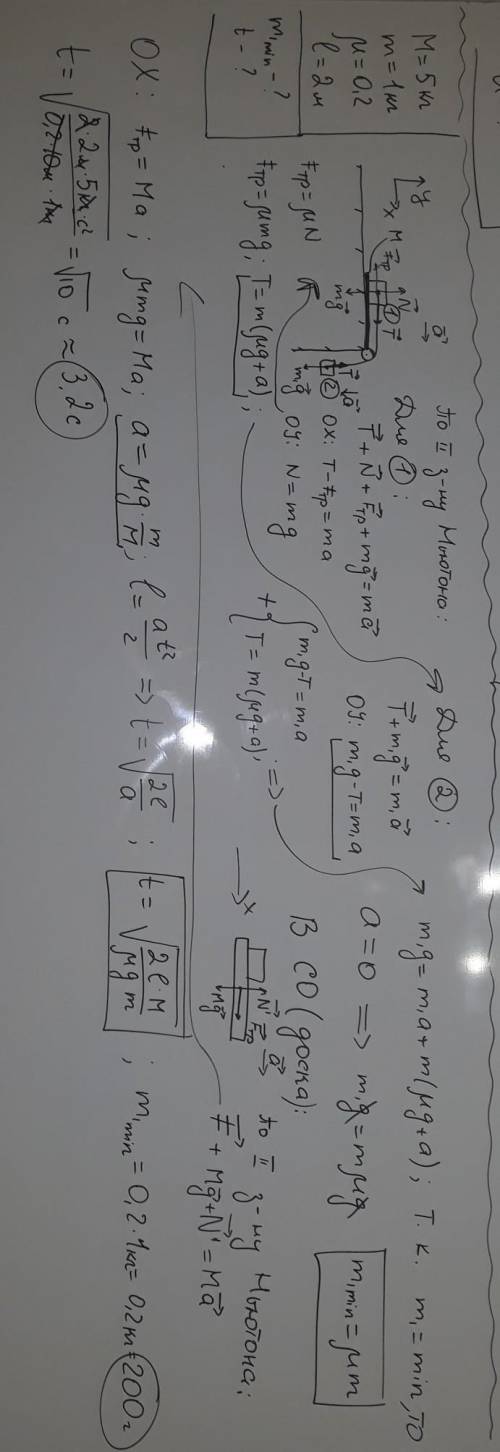 M = 5 кг
m = 1 кг
μ = 0,2
l = 2 м
m₁ min - ?
t - ?
y
x
M
F⃗тр
N⃗
1
T⃗
a⃗
mg⃗
T⃗
a⃗
2
m₁g⃗
По II з-ну Ньютона:
Для ①:
T⃗ + N⃗ + F⃗тр + mg⃗ = ma⃗
OX: T - Fтр = ma
OY: N = mg
Fтр = μN
Fтр = μmg; T = m(μg+a);
Для ②:
T⃗ + m₁g⃗ = m₁a⃗
OY: m₁g - T = m₁a
+ { m₁g - T = m₁a
T = m(μg+a); =>
m₁g = m₁a + m(μg+a); т.к. m₁ = min, то
a = 0 => m₁g = mμg
m₁ min = μm
В СО (доска):
x
N⃗'
F⃗тр
a⃗
Mg⃗
по II з-ну Ньютона:
F⃗ + Mg⃗ + N⃗' = Ma⃗
OX: Fтр = Ma; μmg = Ma; a = μg m/M; l = at²/2 => t = √(2l/a); t = √(2l·M/μgm); m₁ min = 0,2·1кг = 0,2кг = 200г
t = √(2·2м·5кг·с²/0,2·10м·1кг) = √10 с ≈ 3,2с